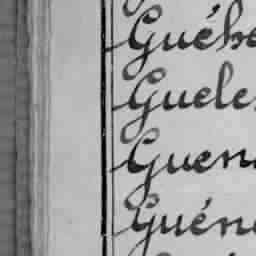 Guéhe
Gueles
Guen
Guéne